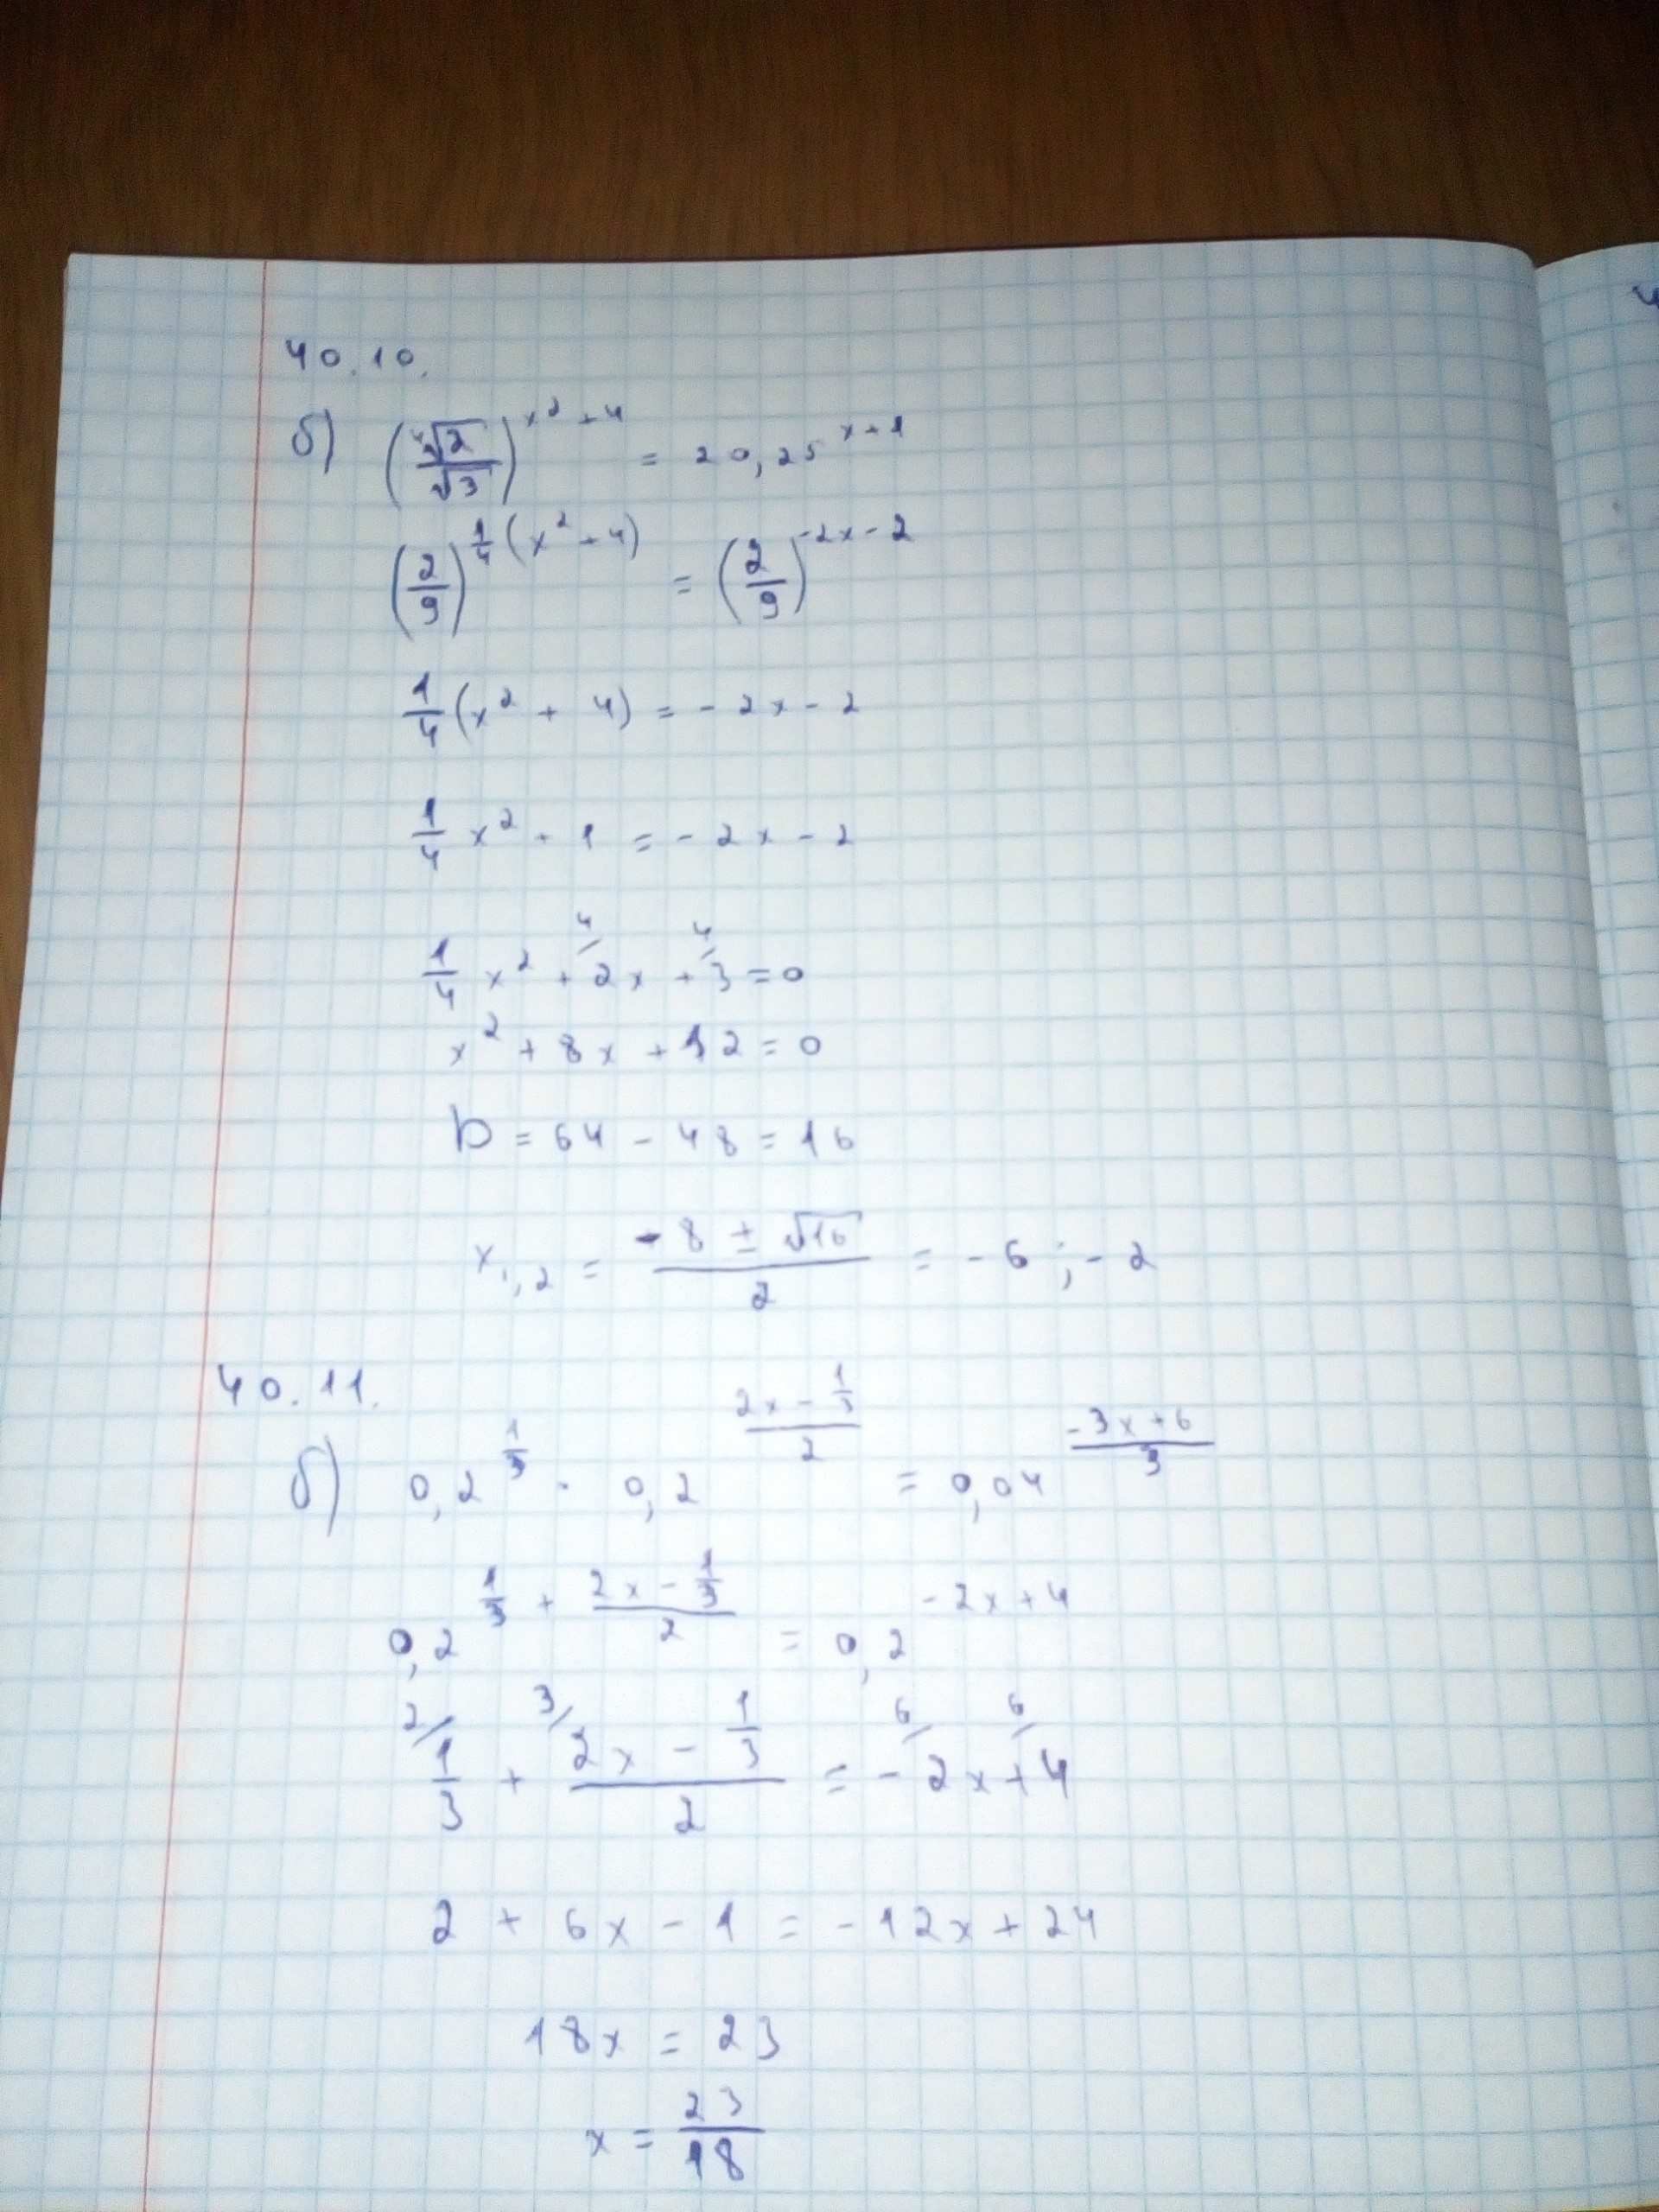 40.10.
б) (⁴√2/√3)^(x²+4) = 20,25^(x+1)
(2/9)^(1/4(x²+4)) = (2/9)^(-2x-2)
1/4(x² + 4) = -2x - 2
1/4 x² + 1 = -2x - 2
1/4 x² + ⁴/2x + ⁴/3 = 0
x² + 8x + 12 = 0
D = 64 - 48 = 16
x₁,₂ = (-8 ± √16)/2 = -6; -2
40.11.
б) 0,2^(1/3) · 0,2^((2x - 1/3)/2) = 0,04^((-3x+6)/3)
0,2^(1/3 + (2x - 1/3)/2) = 0,2^(-2x+4)
²/1/3 + (³/2x - 1/3)/2 = -⁶/2x + ⁶/4
2 + 6x - 1 = -12x + 24
18x = 23
x = 23/18